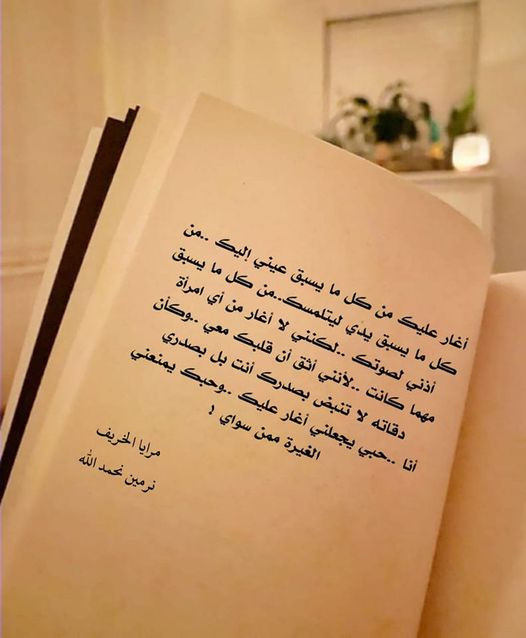 أغار عليك من كل ما يسبق عيني إليك ..من
كل ما يسبق يدي ليتلمسك..من كل ما يسبق
أذني لصوتك ..لكنني لا أغار من أي امرأة
مهما كانت ..لأنني أثق أن قلبك معي ..وكأن
دقاته لا تنبض بصدرك أنت بل بصدري
أنا ..حبي يجعلني أغار عليك ..وحبك يمنعني
الغيرة ممن سواي !
مرايا الخريف
نرمين نحمد الله